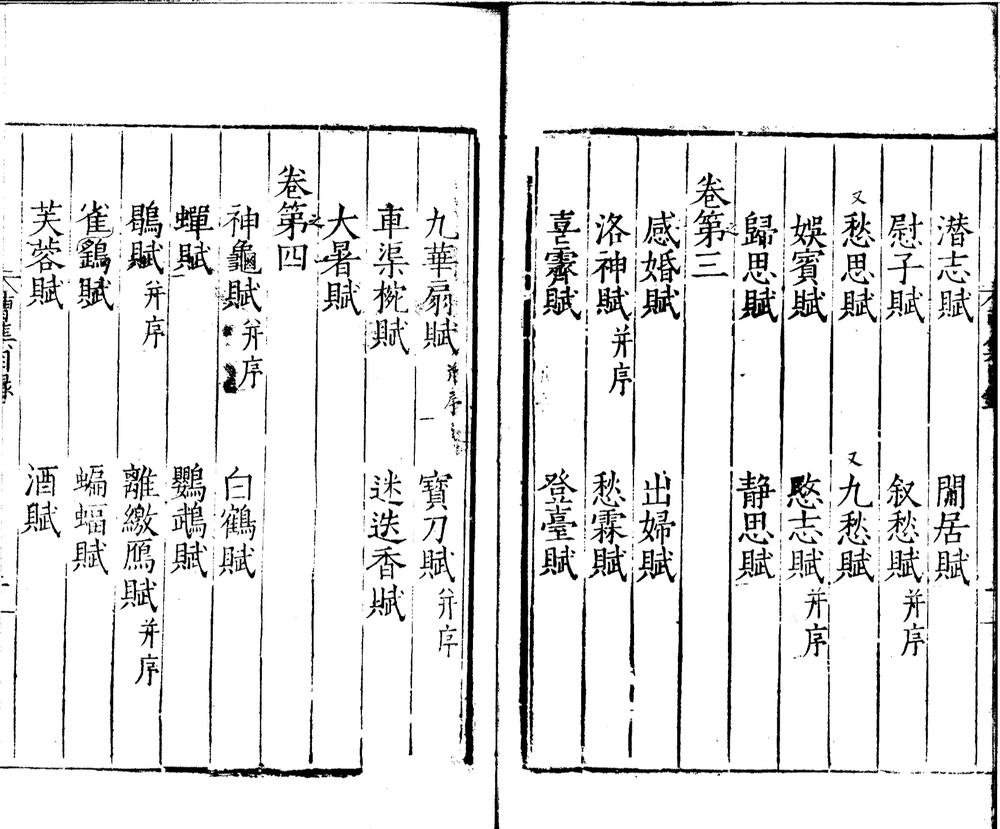 潛志賦 閒居賦
慰子賦 叙愁賦并序
又愁思賦 又九愁賦
娛賓賦 愍志賦并序
歸思賦 静思賦
卷第三
感婚賦 出婦賦
洛神賦并序 愁霖賦
喜霽賦 登臺賦
九華扇賦并序 寶刀賦并序
車渠椀賦 迷迭香賦
大暑賦
卷第四
神龜賦并序 白鶴賦
蟬賦 鸚鵡賦
鶡賦并序 離繳鴈賦并序
雀鷂賦 蝙蝠賦
芙蓉賦 酒賦
曹集目録